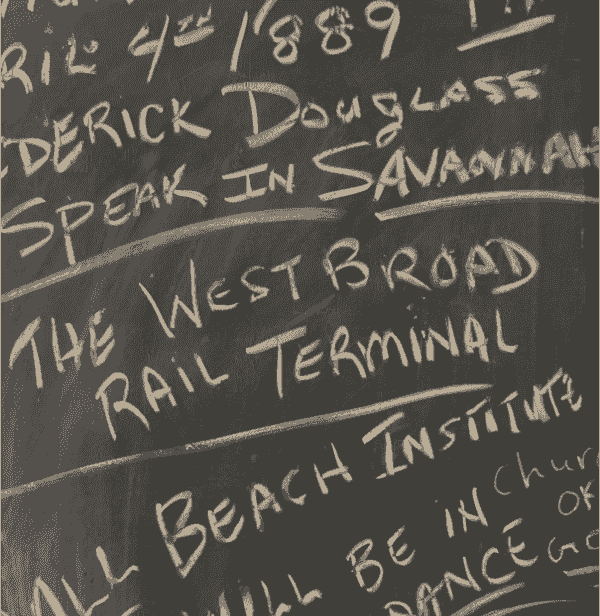 RIL 4TH 1889
DERICK Douglass
SPEAK IN SAVANNAH
THE WEST BROAD
RAIL TERMINAL
ALL BEACH INSTITUTE
WILL BE IN Chur
DANCE OF